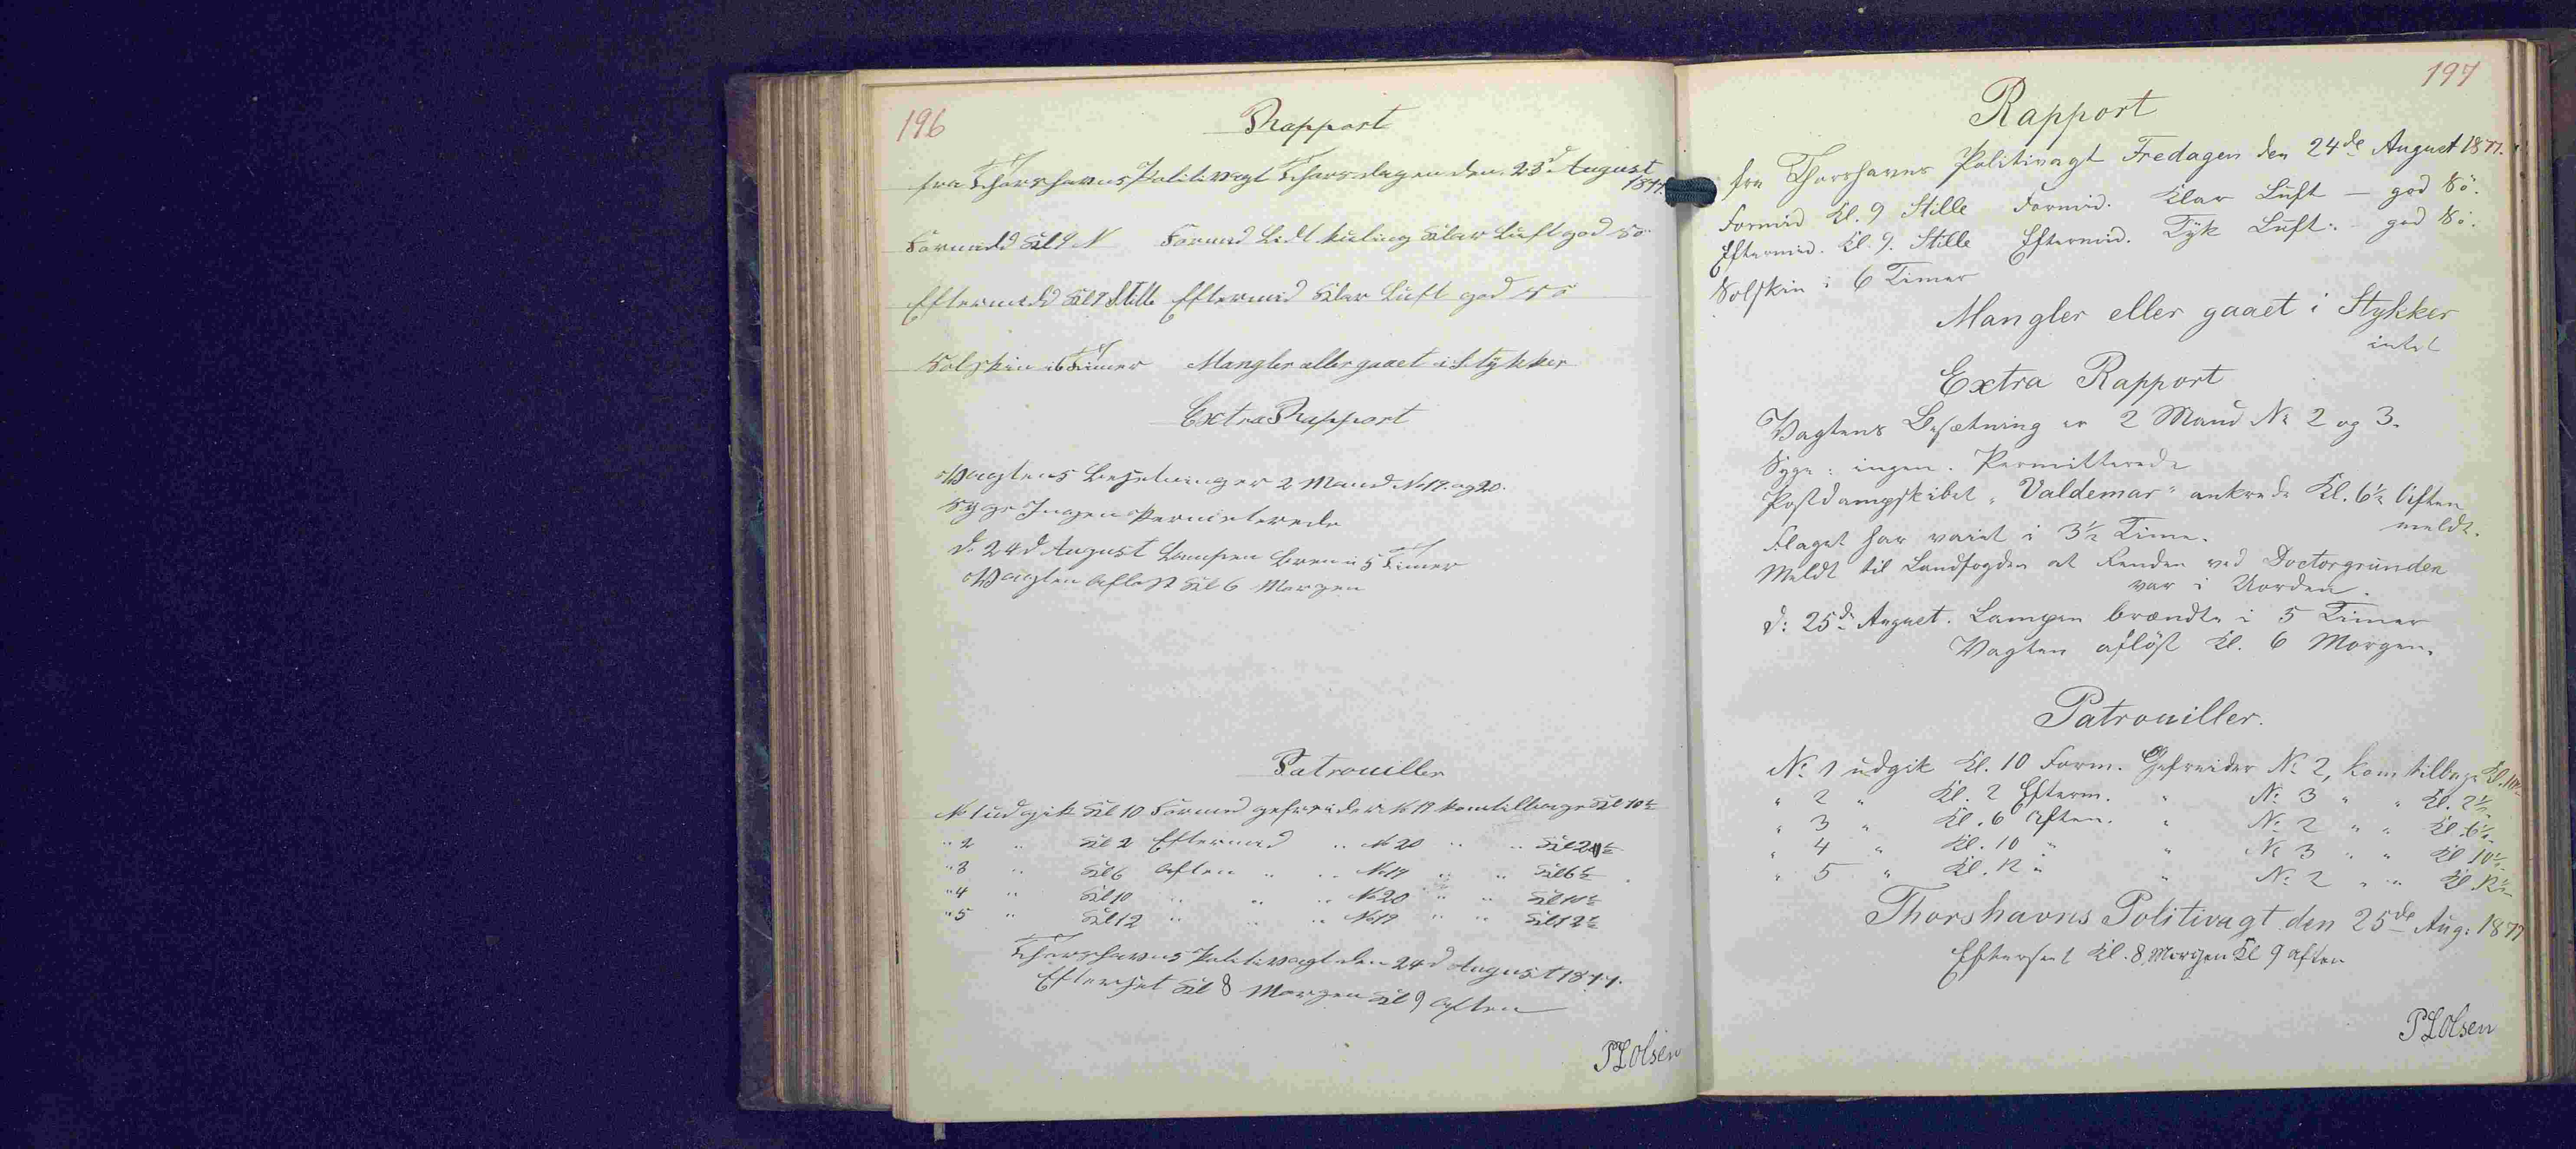 196
Rapport
fra Thorshavns Politivagt Thorsdagen den 23d August
1877
Formidd Kl 9 N Formid Lidt kuling Klar Luft god Sö
Eftermidd Kl 9 Stille Eftermid Klar Luft god Sö
Solskin i 6 Timer Mangler eller gaaet i Stykker
Extra Rapport
Vagtens Besetning er 2 Mand No 19. og 20.
Syge Ingen Permiterede
d. 24d August Lampen Bren i 5 Timer
Vagten Aflöst Kl 6 Morgen
Patrouiller
No 1 udgik Kl 10 Formid gefreider No 19 kom tilbage Kl 10½
" 2 " Kl 2 Eftermid " No 20 " " Kl 2½
" 3 " Kl 6 Aften " " No 19 " " Kl 6½
" 4 " Kl 10 " " " No 20 " " Kl 10½
" 5 " Kl 12 " " " No 19 " " Kl 12½
Thorshavns Politivagt den 24d August 1877.
Efterset Kl 8 Morgen Kl 9 Aften
PLOlsen
197
Rapport
fra Thorshavns Politivagt Fredagen den 24de August 1877.
Formid Kl. 9 Stille Formid. Klar Luft — god Sö.
Eftermid. Kl. 9. Stille Eftermid. Tyk Luft. — god Sö.
Solskin i 6 Timer
Mangler eller gaaet i Stykker
intet
Extra Rapport
Vagtens Besætning er 2 Mand No 2 og 3.
Syge: ingen. Permitterede
Postdampskibet "Valdemar" ankrede Kl. 6½ Aften
meldt.
Flaget har vaiet i 3½ Time.
Meldt til Landfogden at Renden ved Doctorgrunden
var i Uorden.
d: 25de August. Lampen brændte i 5 Timer
Vagten aflöst Kl. 6 Morgen.
Patrouiller.
No. 1 udgik Kl. 10 Form. Gefreider No. 2, kom tilbage Kl. 10½
" 2 " Kl. 2 Efterm. " No. 3 " " Kl. 2½
" 3 " Kl. 6 Aften. " No. 2 " " Kl 6½
" 4 " Kl. 10 " " No. 3 " " Kl 10½
" 5 " Kl. 12 " " No. 2 " " Kl 12½
Thorshavns Politivagt den 25de Aug: 1877
Efterset Kl. 8 Morgen Kl 9 Aften
PLOlsen